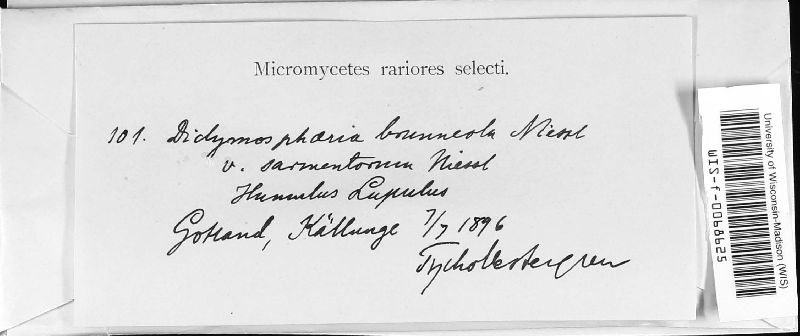 Micromycetes rariores selecti.
101. Didymosphæria brunneola Niessl
v. sarmentorum Niessl
Humulus Lupulus
Gotland, Källunge 7/7 1896
Tycho Vestergren
University of Wisconsin-Madison (WIS)
WIS-f-0068625